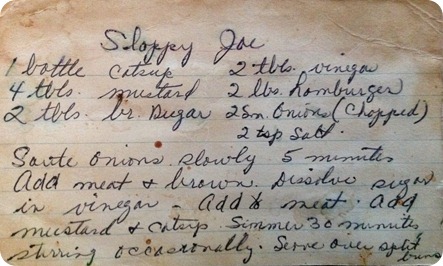 Sloppy Joe
1 bottle catsup 2 tbls. vinegar
4 tbls. mustard 2 lbs. hamburger
2 tbls. br. Sugar 2 Sm. Onions (Chopped)
2 tsp Salt.
Saute onions slowly 5 minutes
Add meat & brown. Dissolve sugar
in vinegar - Add to meat. Add
mustard & catsup. Simmer 30 minutes
stirring occasionally. Serve over split
buns